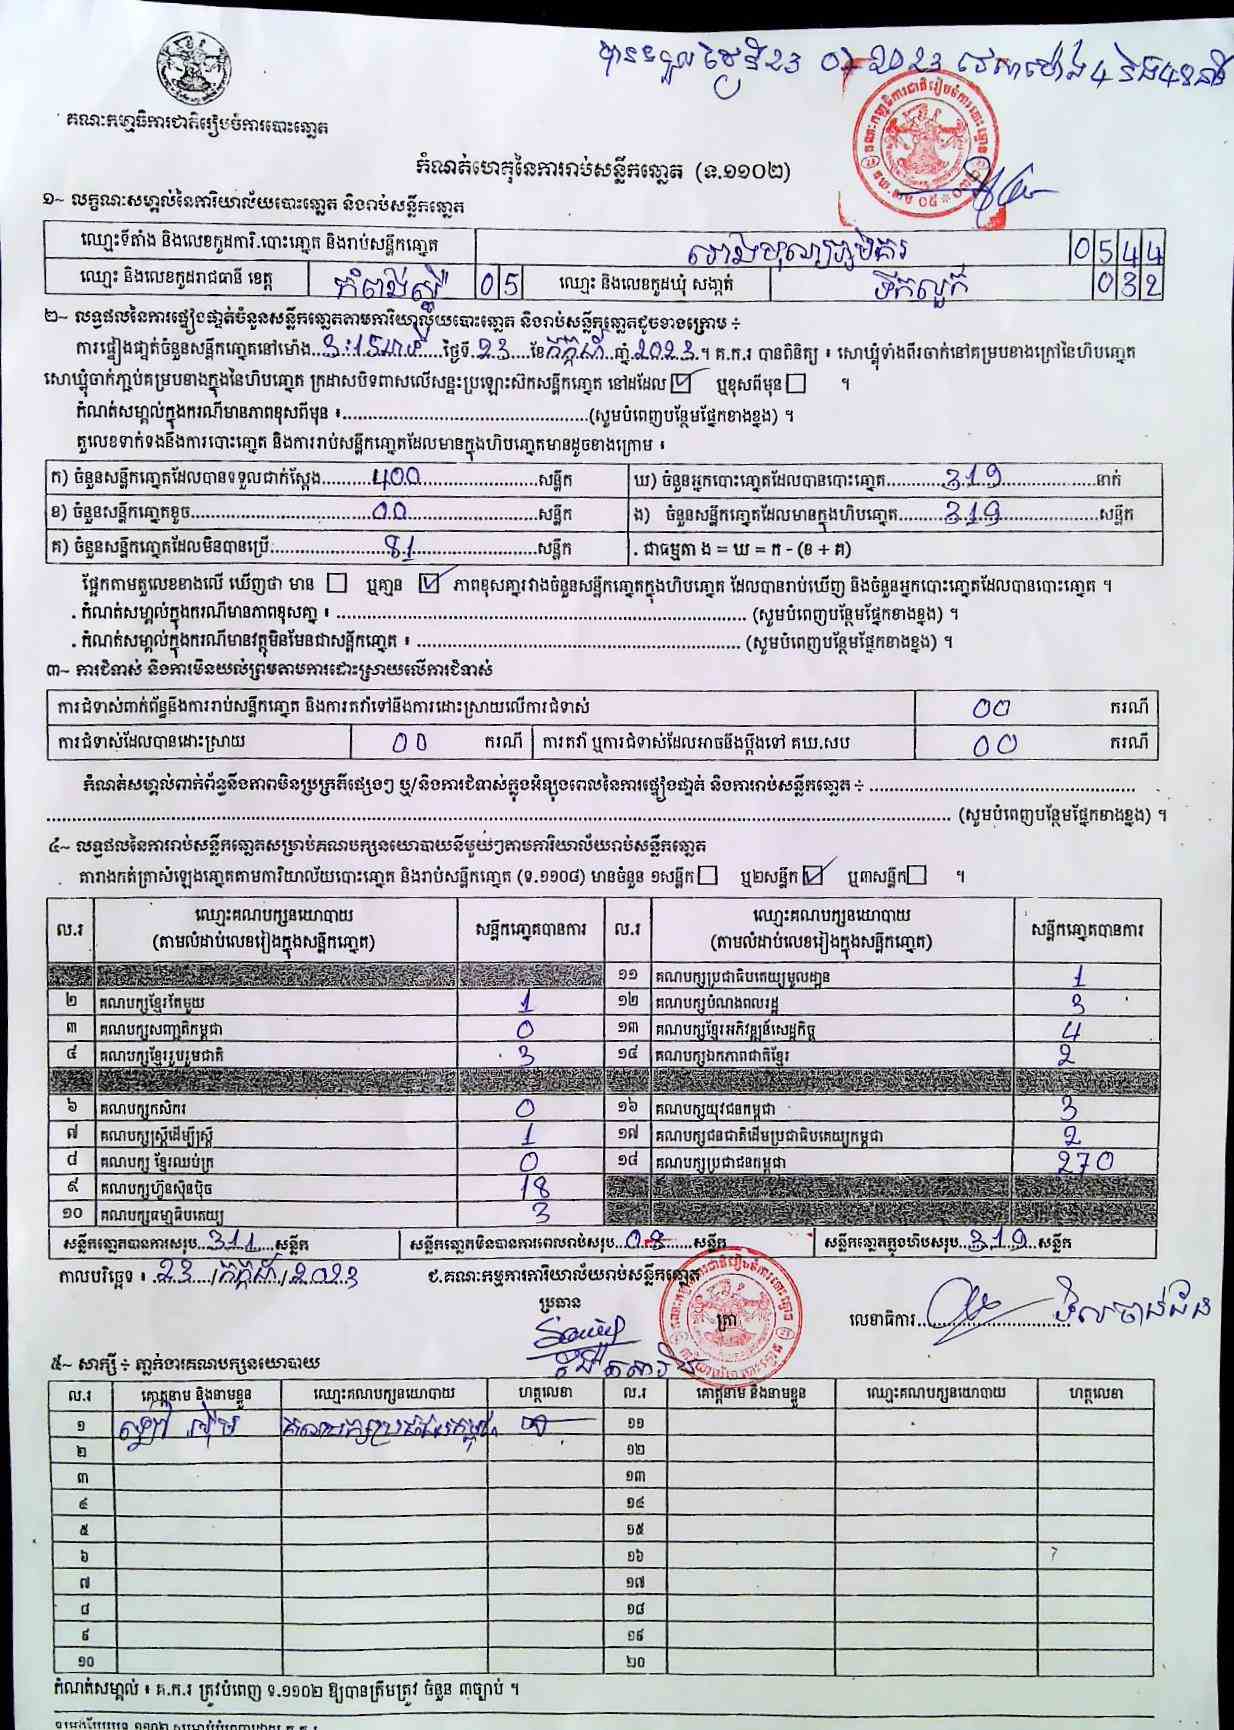 បានទទួល ថ្ងៃទី23 07 2023 វេលាម៉ោង 4 និង42នាទី
គណៈកម្មាធិការជាតិរៀបចំការបោះឆ្នោត
កំណត់ហេតុនៃការរាប់សន្លឹកឆ្នោត (ទ.១១០២)
១~ លក្ខណៈសម្គាល់នៃការិយាល័យបោះឆ្នោត និងរាប់សន្លឹកឆ្នោត
ឈ្មោះទីតាំង និងលេខកូដការិ.បោះឆ្នោត និងរាប់សន្លឹកឆ្នោត 0544
ឈ្មោះ និងលេខកូដរាជធានី ខេត្ត កំពង់ស្ពឺ 05 ឈ្មោះ និងលេខកូដឃុំ សង្កាត់ ទឹកល្អក់ 032
២~ លទ្ធផលនៃការផ្ទៀងផ្ទាត់ចំនួនសន្លឹកឆ្នោតតាមការិយាល័យបោះឆ្នោត និងរាប់សន្លឹកឆ្នោតដូចខាងក្រោម ÷
ការផ្ទៀងផ្ទាត់ចំនួនសន្លឹកឆ្នោតនៅម៉ោង..3:15នាទី....ថ្ងៃទី.23....ខែកក្កដា..ឆ្នាំ.2023.។ គ.ក.រ បានពិនិត្យ ៖ សោឃ្លុំទាំងពីរចាក់នៅគម្របខាងក្រៅនៃហិបឆ្នោត
សោឃ្លុំចាក់ភ្ជាប់គម្របខាងក្នុងនៃហិបឆ្នោត ក្រដាសបិទពាសលើសន្ទះប្រឡោះស៊កសន្លឹកឆ្នោត នៅដដែល ☑ ឬខុសពីមុន ☐ ។
កំណត់សម្គាល់ក្នុងករណីមានភាពខុសពីមុន ៖..........(សូមបំពេញបន្ថែមផ្នែកខាងខ្នង) ។
តួលេខទាក់ទងនឹងការបោះឆ្នោត និងការរាប់សន្លឹកឆ្នោតដែលមានក្នុងហិបឆ្នោតមានដូចខាងក្រោម ៖
ក) ចំនួនសន្លឹកឆ្នោតដែលបានទទួលជាក់ស្តែង..........400..........សន្លឹក ឃ) ចំនួនអ្នកបោះឆ្នោតដែលបានបោះឆ្នោត..........319..........នាក់
ខ) ចំនួនសន្លឹកឆ្នោតខូច..........00..........សន្លឹក ង) ចំនួនសន្លឹកឆ្នោតដែលមានក្នុងហិបឆ្នោត..........319..........សន្លឹក
គ) ចំនួនសន្លឹកឆ្នោតដែលមិនបានប្រើ..........81..........សន្លឹក . ជាធម្មតា ង = ឃ = ក - (ខ + គ)
ផ្អែកតាមតួលេខខាងលើ ឃើញថា មាន ☐ ឬគ្មាន ☑ ភាពខុសគ្នារវាងចំនួនសន្លឹកឆ្នោតក្នុងហិបឆ្នោត ដែលបានរាប់ឃើញ និងចំនួនអ្នកបោះឆ្នោតដែលបានបោះឆ្នោត ។
. កំណត់សម្គាល់ក្នុងករណីមានភាពខុសគ្នា ៖ .......... (សូមបំពេញបន្ថែមផ្នែកខាងខ្នង) ។
. កំណត់សម្គាល់ក្នុងករណីមានវត្ថុមិនមែនជាសន្លឹកឆ្នោត ៖ .......... (សូមបំពេញបន្ថែមផ្នែកខាងខ្នង) ។
៣~ ការជំទាស់ និងការមិនយល់ព្រមតាមការដោះស្រាយលើការជំទាស់
ការជំទាស់ពាក់ព័ន្ធនឹងការរាប់សន្លឹកឆ្នោត និងការតវ៉ាទៅនឹងការដោះស្រាយលើការជំទាស់ 00 ករណី
ការជំទាស់ដែលបានដោះស្រាយ 00 ករណី ការតវ៉ា ឬការជំទាស់ដែលអាចនឹងប្តឹងទៅ គឃ.សប 00 ករណី
កំណត់សម្គាល់ពាក់ព័ន្ធនឹងភាពមិនប្រក្រតីផ្សេងៗ ឬ/និងការជំទាស់ក្នុងអំឡុងពេលនៃការផ្ទៀងផ្ទាត់ និងការរាប់សន្លឹកឆ្នោត ÷ ..........
.......... (សូមបំពេញបន្ថែមផ្នែកខាងខ្នង) ។
៤~ លទ្ធផលនៃការរាប់សន្លឹកឆ្នោតសម្រាប់គណបក្សនយោបាយនីមួយៗតាមការិយាល័យរាប់សន្លឹកឆ្នោត
តារាងកត់ត្រាសំឡេងឆ្នោតតាមការិយាល័យបោះឆ្នោត និងរាប់សន្លឹកឆ្នោត (ទ.១១០៨) មានចំនួន ១សន្លឹក ☐ ឬ២សន្លឹក ☑ ឬ៣សន្លឹក ☐ ។
ល.រ ឈ្មោះគណបក្សនយោបាយ សន្លឹកឆ្នោតបានការ ល.រ ឈ្មោះគណបក្សនយោបាយ សន្លឹកឆ្នោតបានការ
(តាមលំដាប់លេខរៀងក្នុងសន្លឹកឆ្នោត) (តាមលំដាប់លេខរៀងក្នុងសន្លឹកឆ្នោត)
១១ គណបក្សប្រជាធិបតេយ្យមូលដ្ឋាន 1
២ គណបក្សខ្មែរតែមួយ 1 ១២ គណបក្សបំណងពលរដ្ឋ 3
៣ គណបក្សសញ្ជាតិកម្ពុជា 0 ១៣ គណបក្សខ្មែរអភិវឌ្ឍន៍សេដ្ឋកិច្ច 4
៤ គណបក្សខ្មែររួបរួមជាតិ 3 ១៤ គណបក្សឯកភាពជាតិខ្មែរ 2
៦ គណបក្សកសិករ 0 ១៦ គណបក្សយុវជនកម្ពុជា 3
៧ គណបក្សស្ត្រីដើម្បីស្ត្រី 1 ១៧ គណបក្សជនជាតិដើមប្រជាធិបតេយ្យកម្ពុជា 2
៨ គណបក្ស ខ្មែរឈប់ក្រ 0 ១៨ គណបក្សប្រជាជនកម្ពុជា 270
៩ គណបក្សហ៊្វុនស៊ិនប៉ិច 18
១០ គណបក្សធម្មាធិបតេយ្យ 3
សន្លឹកឆ្នោតបានការសរុប..311....សន្លឹក សន្លឹកឆ្នោតមិនបានការពេលរាប់សរុប..08....សន្លឹក សន្លឹកឆ្នោតក្នុងហិបសរុប..319...សន្លឹក
កាលបរិច្ឆេទ ៖ .23./កក្កដា/2023 ជ.គណៈកម្មការការិយាល័យរាប់សន្លឹកឆ្នោត
ប្រធាន
ត្រា លេខាធិការ..........
៥~ សាក្សី ÷ ភ្នាក់ងារគណបក្សនយោបាយ
ល.រ គោត្តនាម និងនាមខ្លួន ឈ្មោះគណបក្សនយោបាយ ហត្ថលេខា ល.រ គោត្តនាម និងនាមខ្លួន ឈ្មោះគណបក្សនយោបាយ ហត្ថលេខា
១ គណបក្សប្រជាជនកម្ពុជា ១១
២ ១២
៣ ១៣
៤ ១៤
៥ ១៥
៦ ១៦
៧ ១៧
៨ ១៨
៩ ១៩
១០ ២០
កំណត់សម្គាល់ ៖ គ.ក.រ ត្រូវបំពេញ ទ.១១០២ ឱ្យបានត្រឹមត្រូវ ចំនួន ៣ច្បាប់ ។